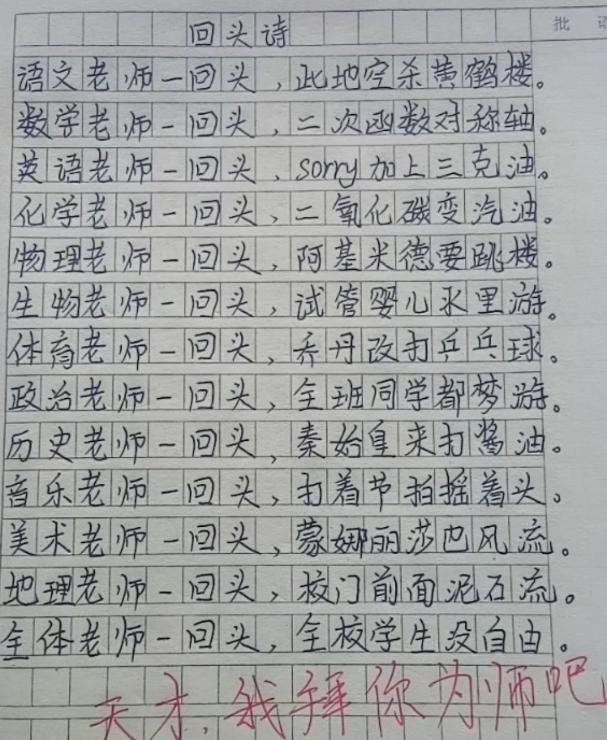 批
回头诗
语文老师一回头,此地空杀黄鹤楼。
数学老师一回头,二次函数对称轴。
英语老师一回头,sorry加上三克油。
化学老师一回头,二氧化碳变汽油。
物理老师一回头,阿基米德要跳楼。
生物老师一回头,试管婴儿水里游。
体育老师一回头,乔丹改打乒乓球。
政治老师一回头,全班同学都梦游。
历史老师一回头,秦始皇来打酱油。
音乐老师一回头,打着节拍摇着头、
美术老师一回头,蒙娜丽莎巴风流。
地理老师一回头,校门前面泥石流。
全体老师一回头,全校学生没自由。
天才,我拜你为师吧